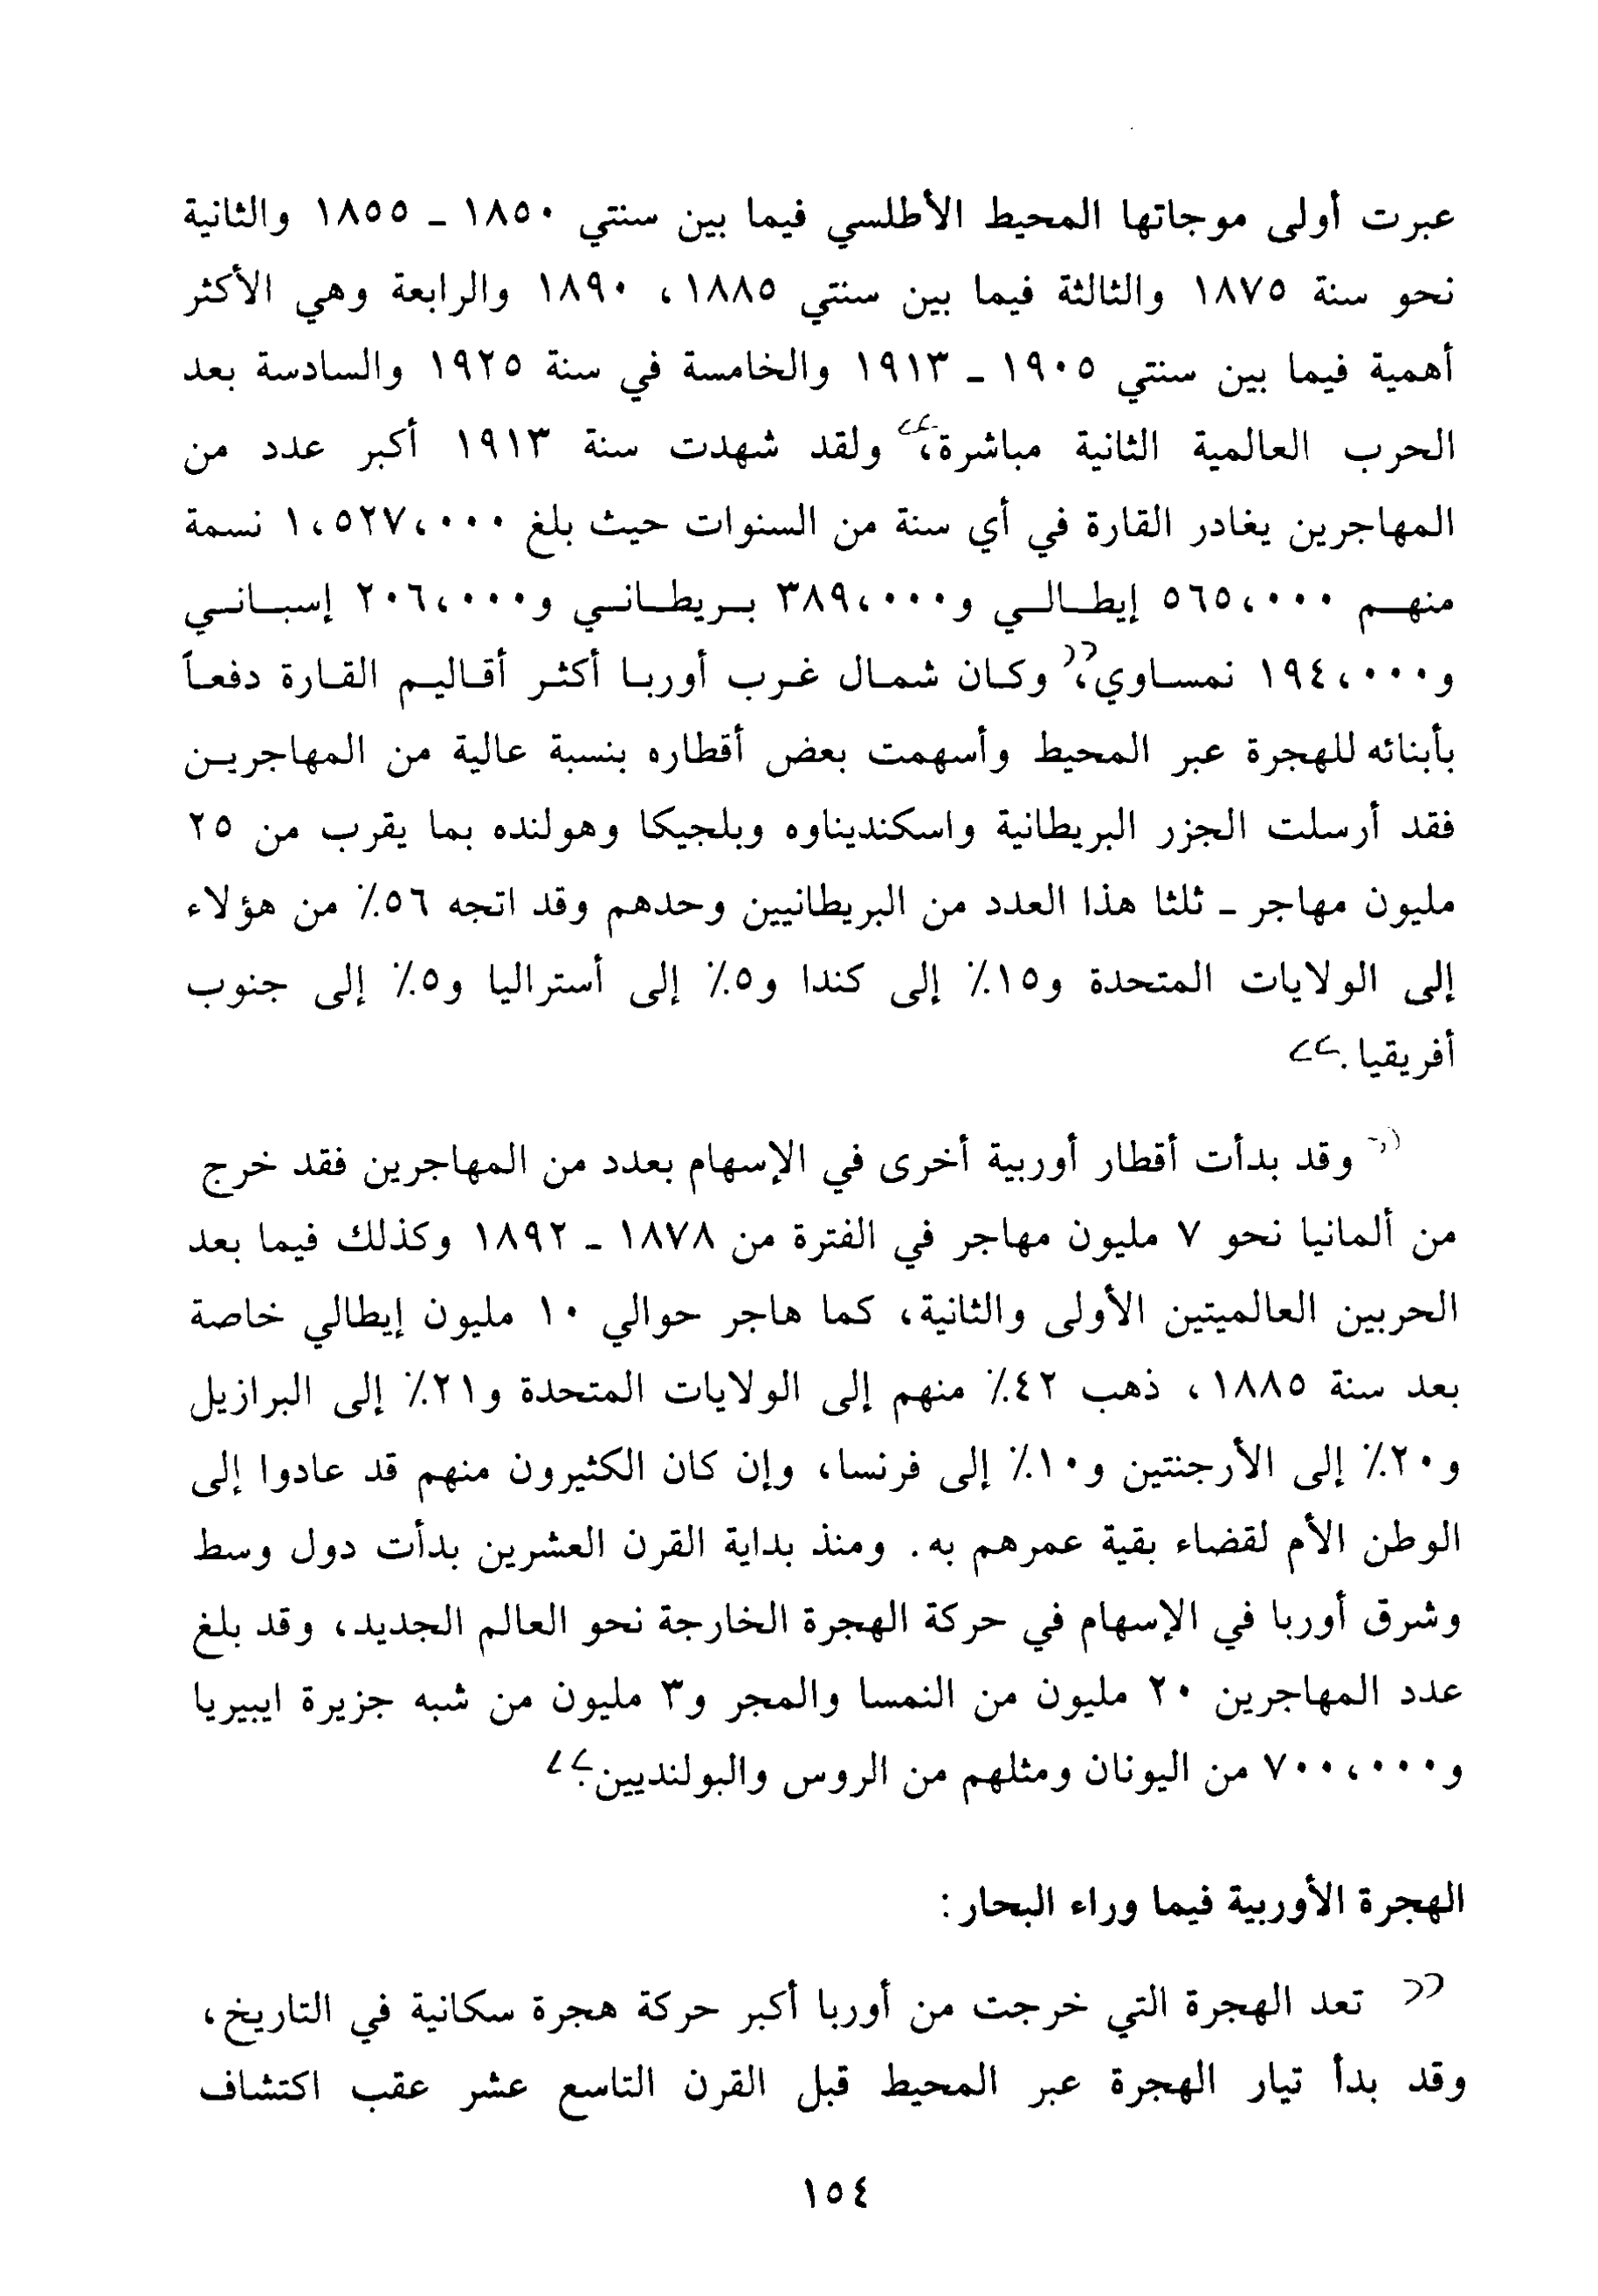 عبرت أولى موجاتها المحيط الأطلسي فيما بين سنتي ١٨٥٠ ـ ١٨٥٥ والثانية
نحو سنة ١٨٧٥ والثالثة فيما بين سنتي ١٨٨٥، ١٨٩٠ والرابعة وهي الأكثر
أهمية فيما بين سنتي ١٩٠٥ ـ ١٩١٣ والخامسة في سنة ١٩٢٥ والسادسة بعد
الحرب العالمية الثانية مباشرة، ولقد شهدت سنة ١٩١٣ أكبر عدد من
المهاجرين يغادر القارة في أي سنة من السنوات حيث بلغ ١،٥٢٧،٠٠٠ نسمة
منهم ٥٦٥،٠٠٠ إيطالي و٣٨٩،٠٠٠ بريطاني و٢٠٦،٠٠٠ إسباني
و١٩٤،٠٠٠ نمساوي، وكان شمال غرب أوربا أكثر أقاليم القارة دفعاً
بأبنائه للهجرة عبر المحيط وأسهمت بعض أقطاره بنسبة عالية من المهاجرين
فقد أرسلت الجزر البريطانية واسكنديناوه وبلجيكا وهولنده بما يقرب من ٢٥
مليون مهاجر ـ ثلثا هذا العدد من البريطانيين وحدهم وقد اتجه ٥٦٪ من هؤلاء
إلى الولايات المتحدة و١٥٪ إلى كندا و٥٪ إلى أستراليا و٥٪ إلى جنوب
أفريقيا. >>
(( وقد بدأت أقطار أوربية أخرى في الإسهام بعدد من المهاجرين فقد خرج
من ألمانيا نحو ٧ مليون مهاجر في الفترة من ١٨٧٨ ـ ١٨٩٢ وكذلك فيما بعد
الحربين العالميتين الأولى والثانية، كما هاجر حوالي ١٠ مليون إيطالي خاصة
بعد سنة ١٨٨٥، ذهب ٤٢٪ منهم إلى الولايات المتحدة و٢١٪ إلى البرازيل
و٢٠٪ إلى الأرجنتين و١٠٪ إلى فرنسا، وإن كان الكثيرون منهم قد عادوا إلى
الوطن الأم لقضاء بقية عمرهم به. ومنذ بداية القرن العشرين بدأت دول وسط
وشرق أوربا في الإسهام في حركة الهجرة الخارجة نحو العالم الجديد، وقد بلغ
عدد المهاجرين ٢٠ مليون من النمسا والمجر و٣ مليون من شبه جزيرة ايبيريا
و٧٠٠،٠٠٠ من اليونان ومثلهم من الروس والبولنديين. >>
الهجرة الأوربية فيما وراء البحار:
(( تعد الهجرة التي خرجت من أوربا أكبر حركة هجرة سكانية في التاريخ،
وقد بدأ تيار الهجرة عبر المحيط قبل القرن التاسع عشر عقب اكتشاف
١٥٤